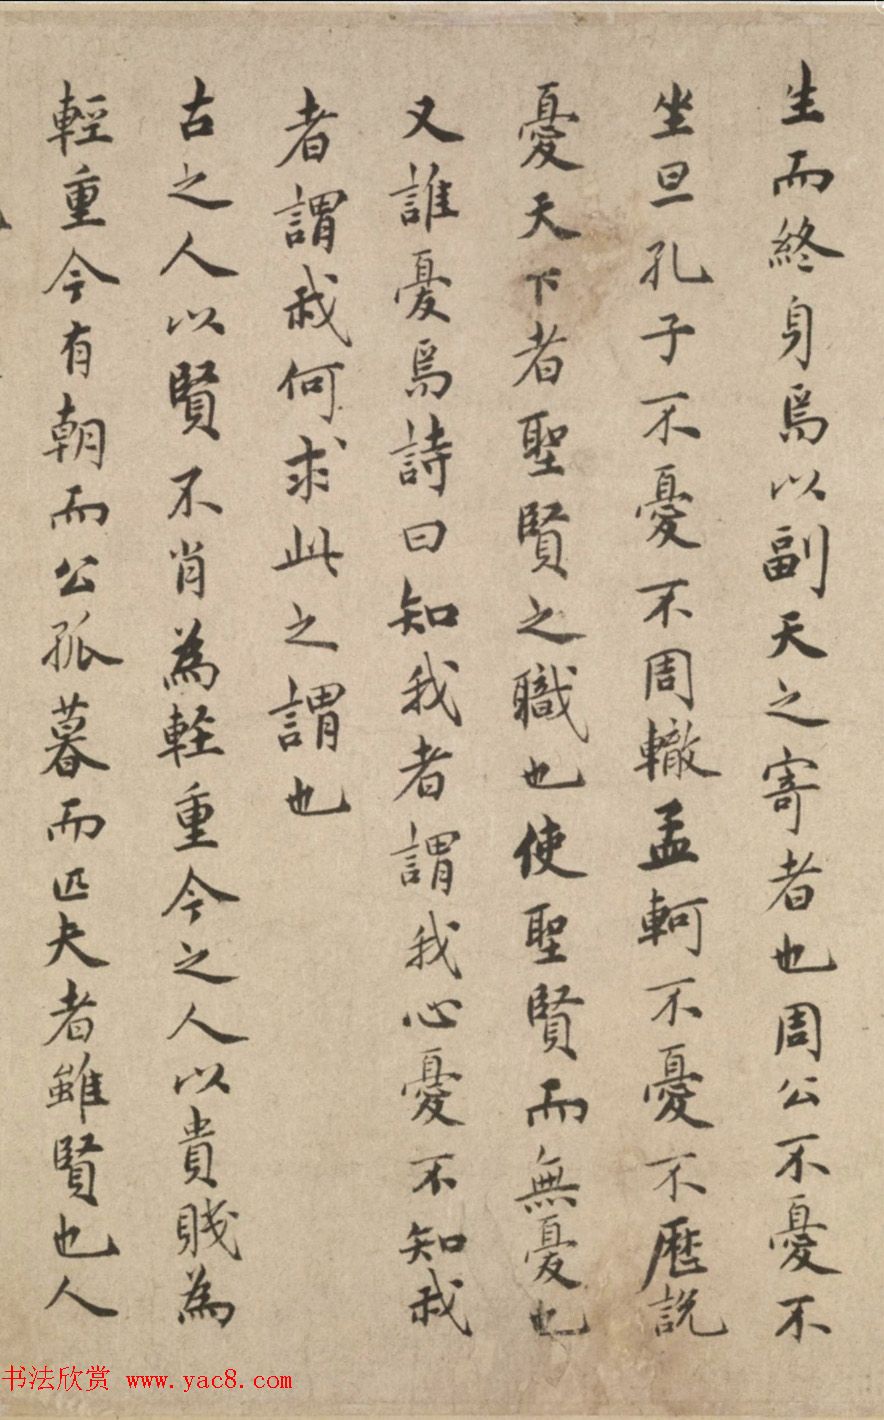 生而終身焉以副天之寄者也周公不憂不
坐旦孔子不憂不周轍孟軻不憂不歷說
憂天下者聖賢之職也使聖賢而無憂也
又誰憂焉詩曰知我者謂我心憂不知我
者謂我何求此之謂也
古之人以賢不肖為輕重今之人以貴賤為
輕重今有朝而公孤暮而匹夫者雖賢也人
书法欣赏 www.yac8.com